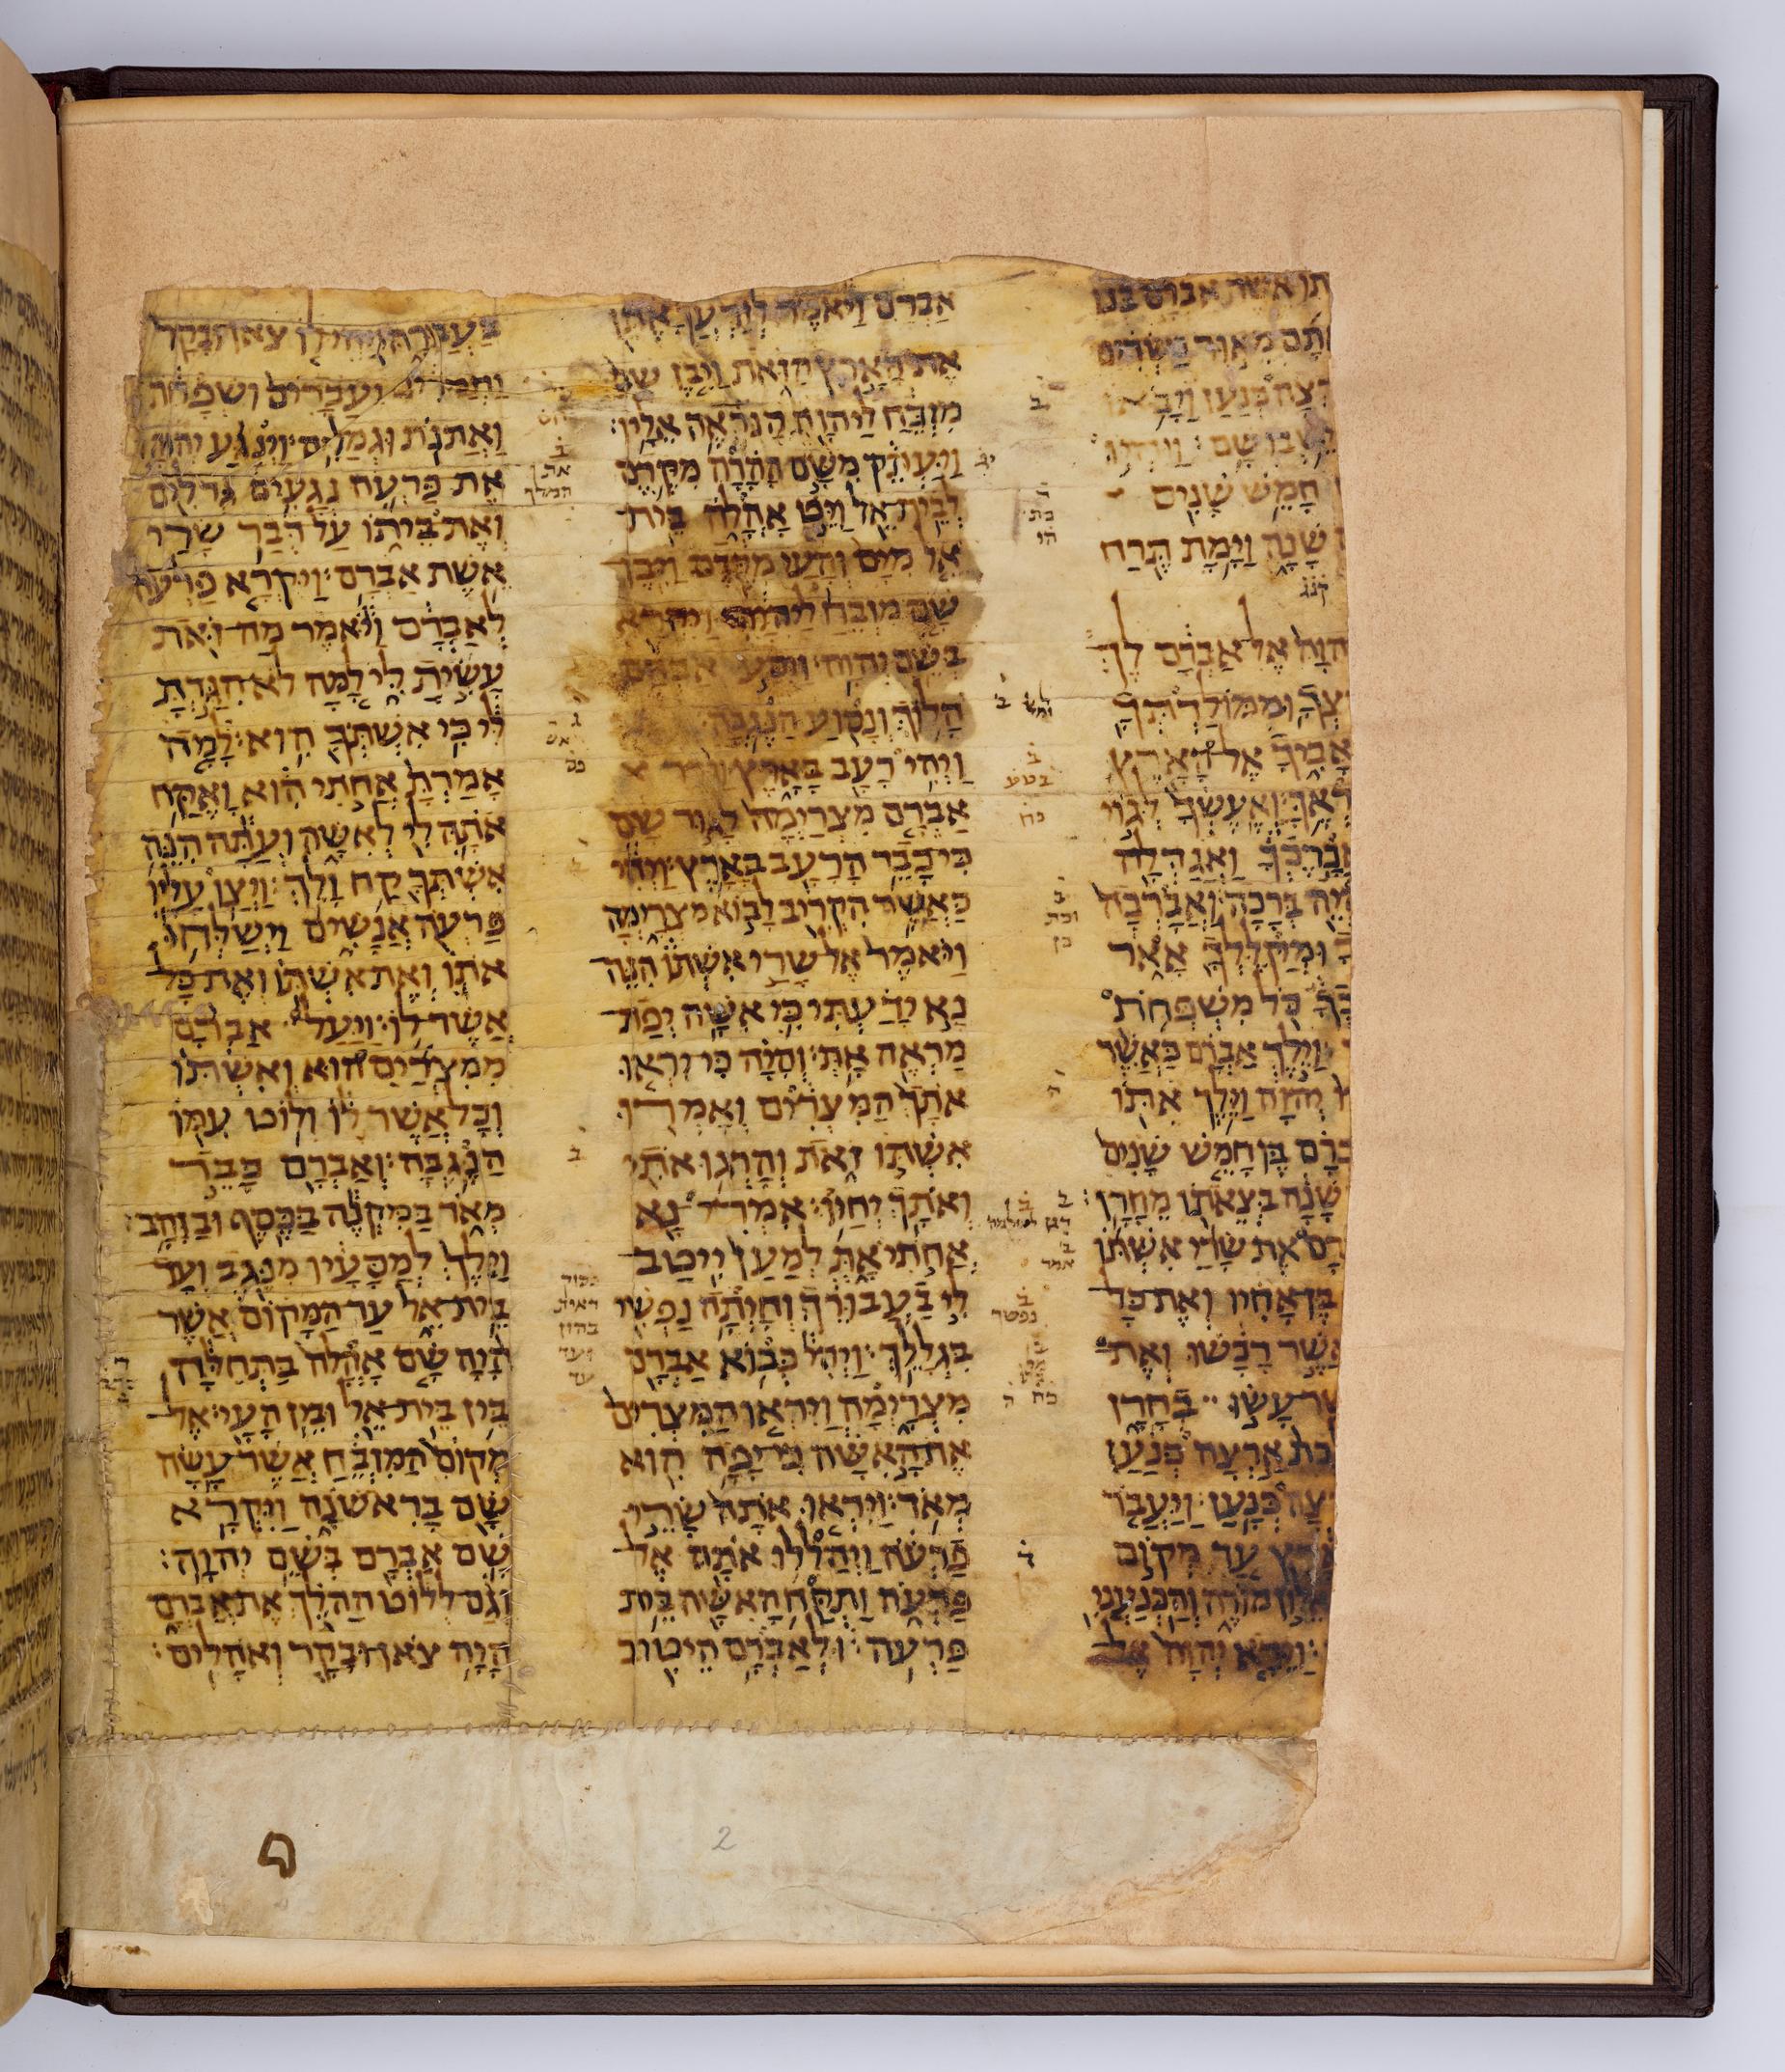 תו אשר אברם בנו
תם מאור כשדים
רצה כנען ויבאו
וישבו שם ׃ ויהיו
חמש שנים
שנה וימת תרח
קנג
הוה אל אברם לך
צך וממולדתך
אביך אל הארץ
ראך ׃ ואעשך לגוי
ואברכך ואגדלה
יה ברכה ׃ ואברכה
ך ומקללך אאר
בך כל משפחת
וילך אברם כאשר
יהוה וילך אתו
ברם בן חמש שנים
שנה בצאתו מחרן ׃
רם את שרי אשתו
בן אחיו ואת כל
אשר רכשו ואת
שר עשו בחרן
כת ארצה כנען
צה כנען ׃ ויעבר
ארץ עד מקום
אלון מורה והכנעני
׃ וירא יהוה אל
אברם ויאמר לזרעך אתן
את הארץ הזאת ויבן שם
מזבח ליהוה הנראה אליו ׃
ויעתק משם ההרה מקדם
לבית אל ויט אהלה בית
אל מים והעי מקדם ויבן
שם מזבח ליהוה ויקרא
בשם יהוה ׃ ויסע אברם
הלוך ונסוע הנגבה
ויהי רעב בארץ וירד
אברם מצרימה לגור שם
כי כבד הרעב בארץ ׃ ויהי
כאשר הקריב לבוא מצרימה
ויאמר אל שרי אשתו הנה
נא ידעתי כי אשה יפת
מראה את ׃ והיה כי יראו
אתך המצרים ואמרו
אשתו זאת והרגו אתי
ואתך יחיו ׃ אמרי נא
אחתי את למען ייטב
לי בעבורך וחיתה נפשי
בגללך ׃ ויהי כבוא אברם
מצרימה ויראו המצרים
את האשה כי יפה הוא
מאד ׃ ויראו אתה שרי
פרעה ויהללו אתה אל
פרעה ותקח האשה בית
פרעה ׃ ולאברם היטיב
בעבורה ויהי לו צאן ובקר
וחמרים ועבדים ושפחת
ואתנת וגמלים ׃ וינגע יהוה
את פרעה נגעים גדלים
ואת ביתו על דבר שרי
אשת אברם ׃ ויקרא פרעה
לאברם ויאמר מה זאת
עשית לי למה לא הגדת
לי כי אשתך הוא ׃ למה
אמרת אחתי הוא ואקח
אתה לי לאשה ועתה הנה
אשתך קח ולך ׃ ויצו עליו
פרעה אנשים וישלחו
אתו ואת אשתו ואת כל
אשר לו ׃ ויעל אברם
ממצרים הוא ואשתו
וכל אשר לו ולוט עמו
הנגבה ׃ ואברם כבד
מאד במקנה בכסף ובזהב ׃
וילך למסעיו מנגב ועד
בית אל עד המקום אשר
היה שם אהלה בתחלה
בין בית אל ובין העי ׃ אל
מקום המזבח אשר עשה
שם בראשנה ויקרא
שם אברם בשם יהוה ׃
וגם ללוט ההלך את אברם
היה צאן ובקר ואהלים ׃
2